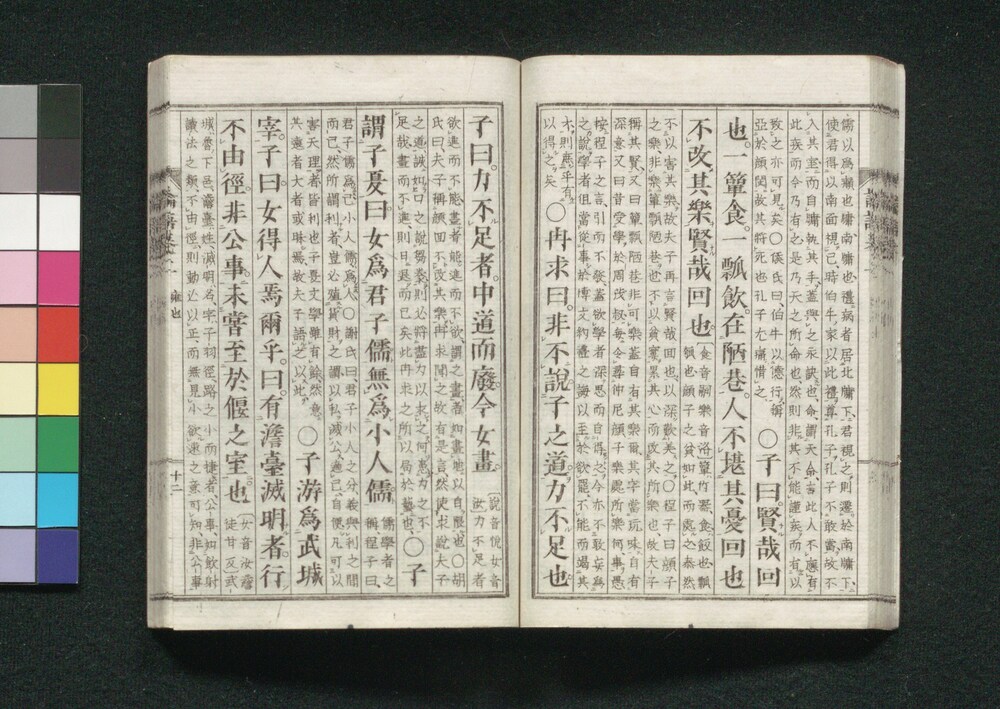 儒以爲癩也牖南牖也禮病者居北牖下君視之則遷於南牖下
使君得以南面視己時伯牛家以此禮尊孔子孔子不敢當故不
入其室而自牖執其手蓋與之永訣也命謂天命言此人不應有
此疾而今乃有之是乃天之所命也然則非其不能謹疾而有以
致之亦可見矣○侯氏曰伯牛以德行稱
亞於顏閔故其將死也孔子尤痛惜之
○子曰賢哉回
也。一簞食。一瓢飲。在陋巷。人不堪其憂回也
不改其樂賢哉回也。
食音嗣樂音洛簞竹器食飯也瓢
瓢也顏子之貧如此而處之泰然
不以害其樂故夫子再言賢哉回也以深歎美之○程子曰顏子
之樂非樂簞瓢陋巷也不以貧窶累其心而改其所樂也故夫子
稱其賢又曰簞瓢陋巷非可樂蓋自有其樂爾其字當玩味自有
深意又曰昔受學於周茂叔每令尋仲尼顏子樂處所樂何事愚
按程子之言引而不發蓋欲學者深思而自得之今亦不敢妄爲
之說學者但當從事於博文約禮之誨以至於欲罷不能而竭其
才則庶乎有
以得之矣
○冉求曰。非不說子之道。力不足也
子曰。力不足者。中道而廢。今女畫。
說音悅女音
汝力不足者
欲進而不能畫者能進而不欲謂之畫者如畫地以自限也○胡
氏曰夫子稱顏回不改其樂冉求聞之故有是言然使求說夫子
之道誠如口之說芻豢則必將盡力以求之何患力之不
足哉畫而不進則日退而已矣此冉求之所以局於藝也
○子
謂子夏曰女爲君子儒無爲小人儒
儒學者之
稱程子曰
君子儒爲己小人儒爲人○謝氏曰君子小人之分義與利之閒
而已然所謂利者豈必殖貨財之謂以私滅公適己自便凡可以
害天理者皆利也子夏文學雖有餘然意
其遠者大者或昧焉故夫子語之以此
○子游爲武城
宰。子曰女得人焉爾乎。曰。有澹臺滅明者。行
不由徑。非公事。未嘗至於偃之室也。
女音汝澹
徒甘反武
城魯下邑澹臺姓滅明名字子羽徑路之小而捷者公事如飲射
讀法之類不由徑則動必以正而無見小欲速之意可知非公事
雍也
十二